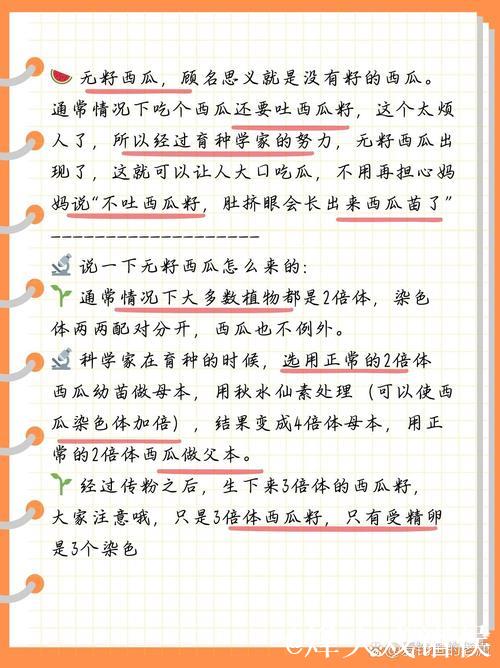 无籽西瓜，顾名思义就是没有籽的西瓜。
通常情况下吃个西瓜还要吐西瓜籽，这个太烦
人了，所以经过育种学家的努力，无籽西瓜出
现了，这就可以让人大口吃瓜，不用再担心妈
妈说“不吐西瓜籽，肚挤眼会长出来西瓜苗了”
--------------------
说一下无籽西瓜怎么来的：
通常情况下大多数植物都是2倍体，染色
体两两配对分开，西瓜也不例外。
科学家在育种的时候，选用正常的2倍体
西瓜幼苗做母本，用秋水仙素处理（可以使西
瓜染色体加倍），结果变成4倍体母本，用正
常的2倍体西瓜做父本。
经过传粉之后，生下来3倍体的西瓜籽，
大家注意哦，只是3倍体西瓜籽，只有受精卵
是3个染色